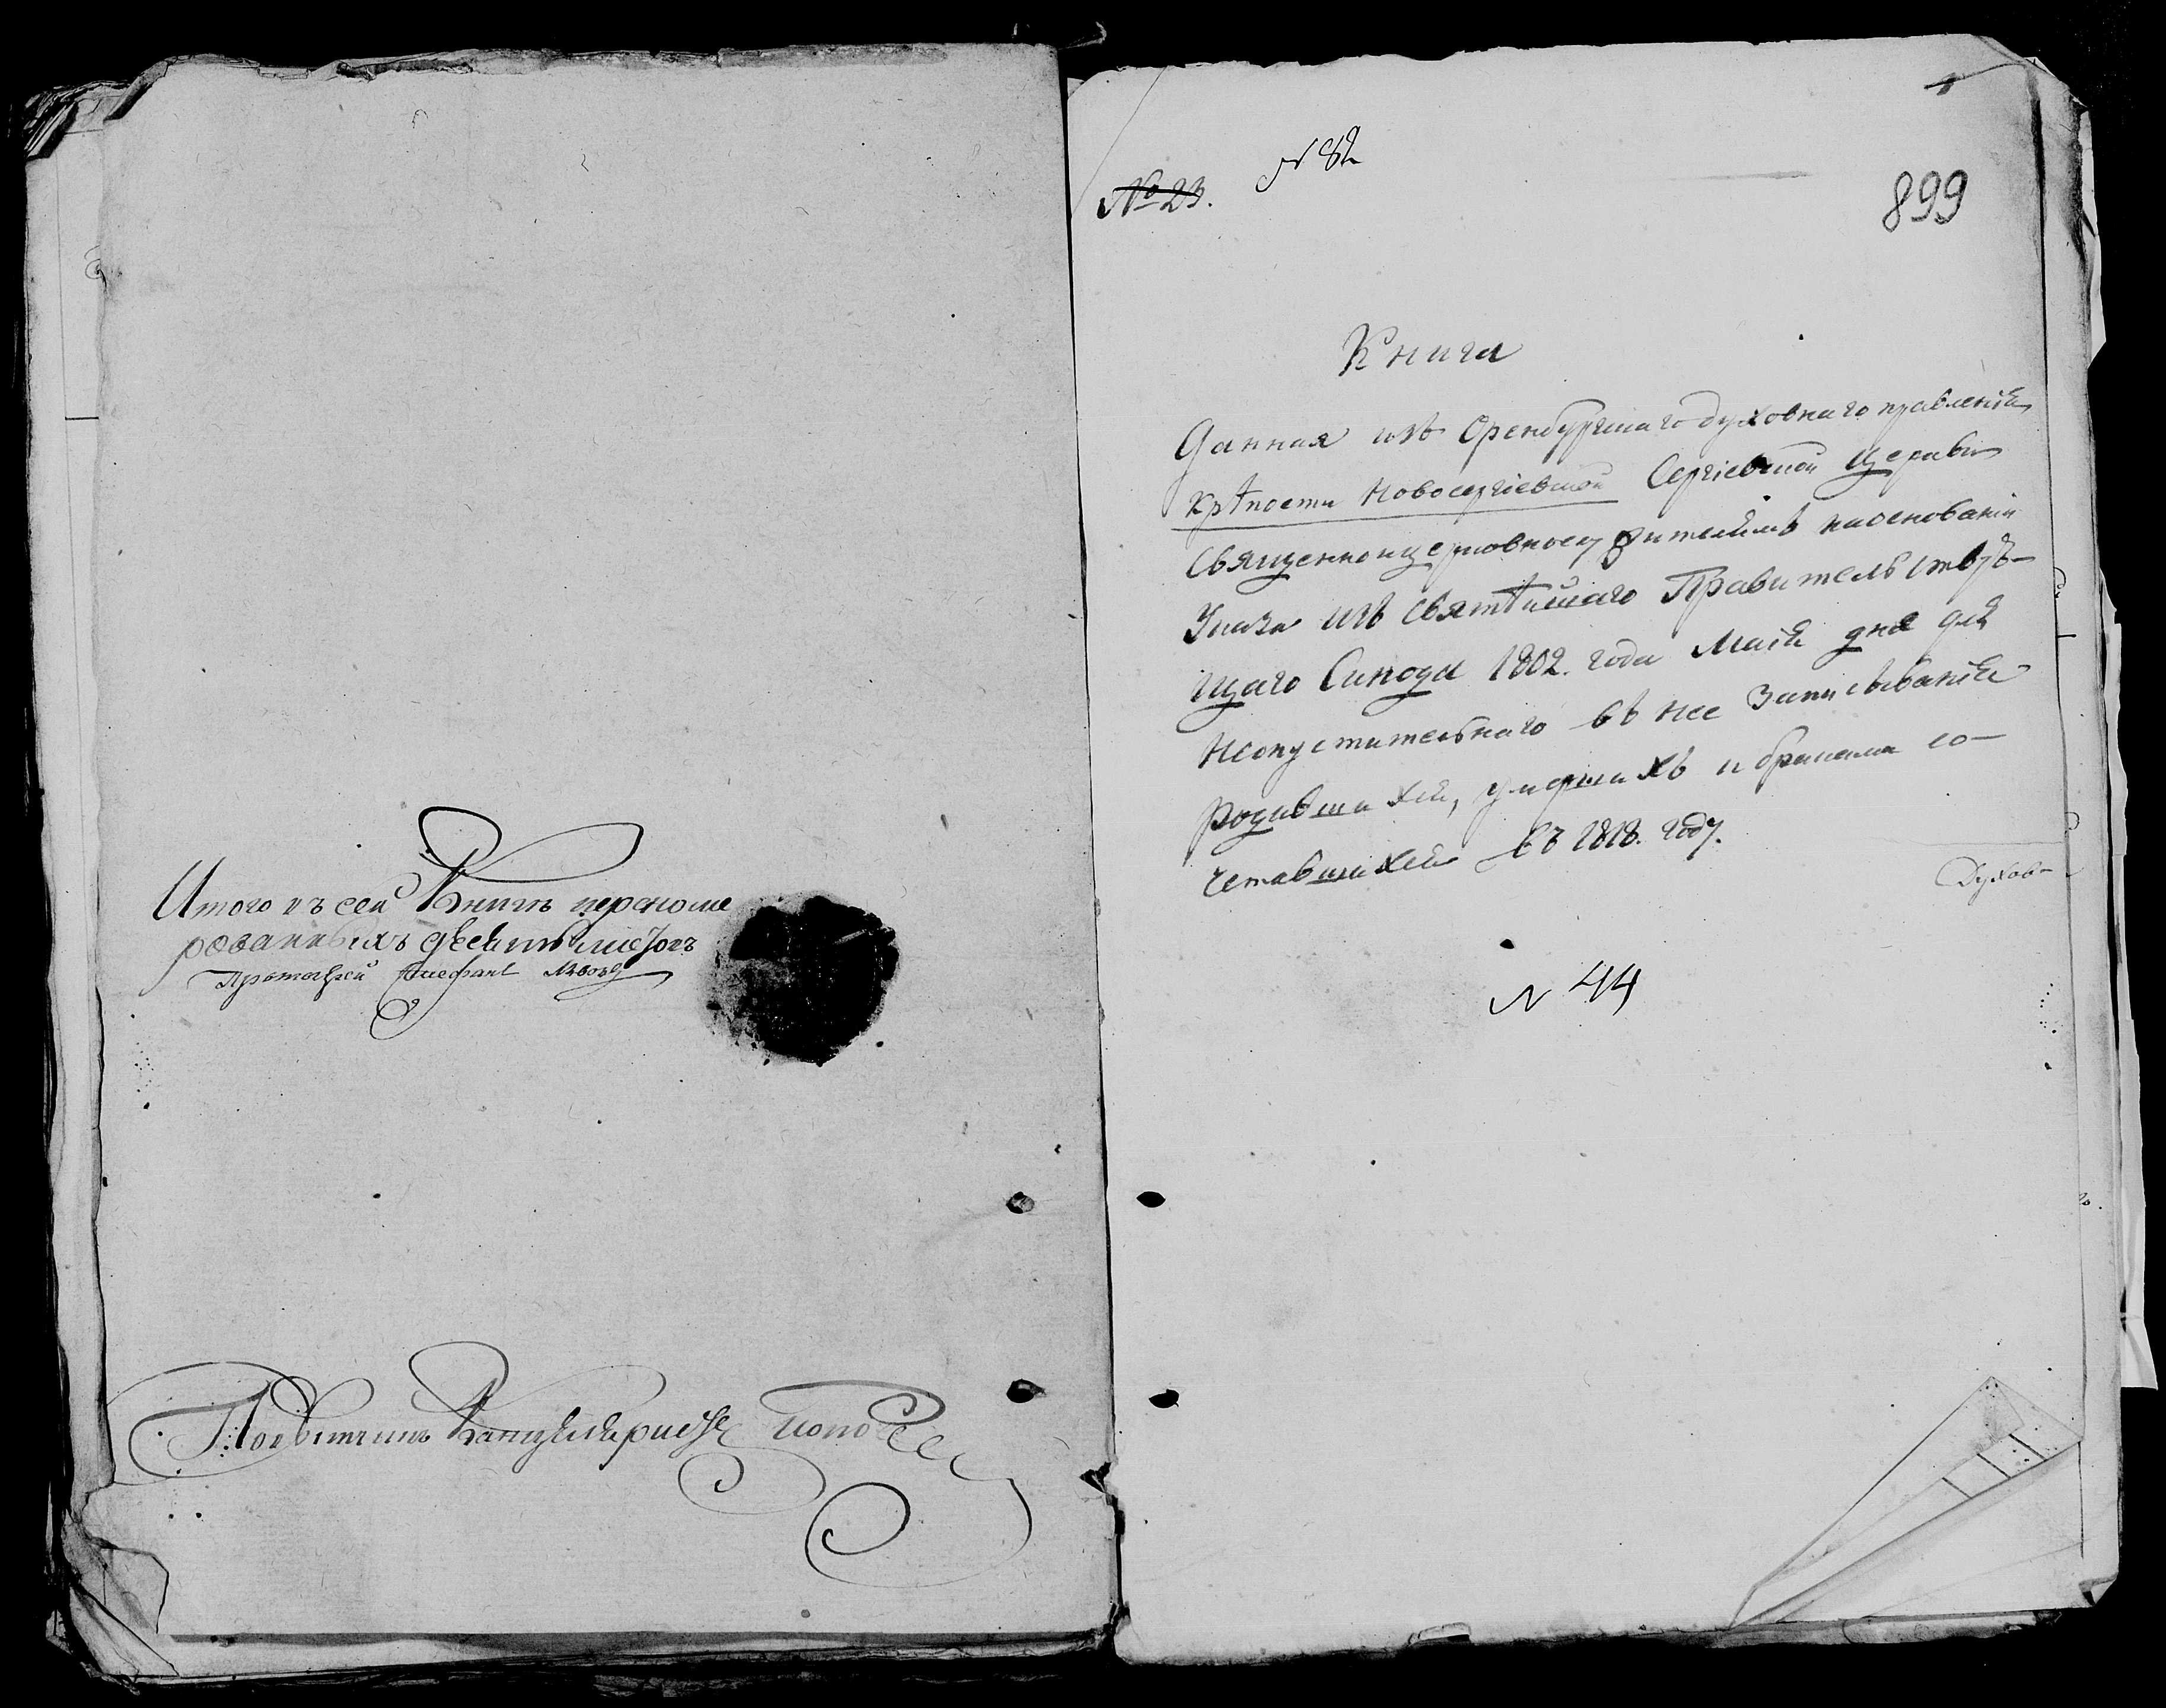 Итого въ сей Книгѣ переноме
рованныхъ девять листовъ
Протоіерей
Повытчикъ Канцеляристъ Попо
№ 23.
N 82
899
Книга
Данная изъ Оренбургскаго духовнаго правленія
крѣпости Новосергіевской Сергіевской Церкви
Священноцерковнослужителямъ наосновании
Указа изъ Святѣйшаго Правительствую-
щаго Синода 1802. года Маія дня для
Неопустительнаго въ нее Записыванія
родившихся, умершихъ и бракомъ со-
четавшихся въ 1818. году.
Духов-
N 44